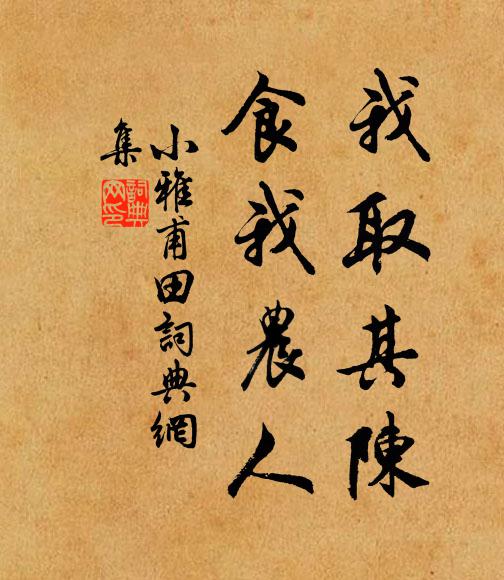 我取其陳
食我農人
小雅甫田詞典網
集
詞典
网印